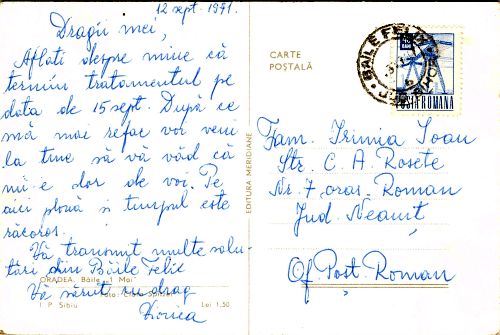 12 sept. 1971.
Dragii mei,
Aflati despre mine că
termin tratamentul pe
data de 15 sept. După ce
mă mai refac voi veni
la tine să vă văd că
mi-e dor de voi. Pe
aici plouă si timpul este
răcoros.
Vă transmit multe salu-
tări din Băile Felix
ORADEA. Băile 1 Mai
Vă sărut cu drag
I. P. Sibiu
Lei 1,50
Viorica
EDITURA MERIDIANE
CARTE
POSTALĂ
BAILE FELIX
POSTA ROMANA
Fam. Irimia Ioan
Str. C. A. Rosete
Nr. 7, oraș. Roman
Jud. Neamț
Of. Post. Roman